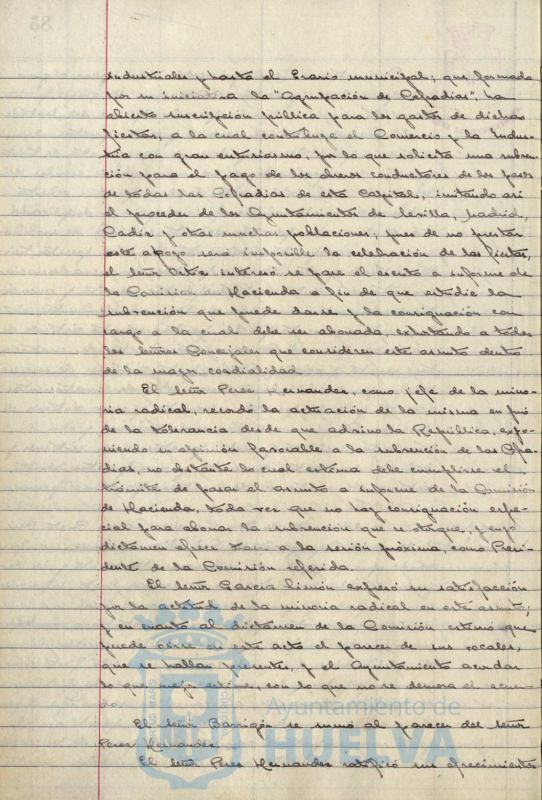 industriales y hasta el Erario municipal; que formada
por su iniciativa la "Agrupación de Cofradias", ha
abierto suscripción pública para los gastos de dichas
fiestas, a la cual contribuye el Comercio y la Indus-
tria con gran entusiasmo, por lo que solicita una subven-
ción para el pago de los obreros conductores de los pasos
de todas las Cofradias de esta Capital, imitando asi
el proceder de los Ayuntamientos de Sevilla, Madrid,
Cadiz y otras muchas poblaciones, pues de no prestar
este apoyo será imposible la celebración de las fiestas,
el señor Ortiz interesó se pase el escrito a informe de
la Comisión de Hacienda a fin de que estudie la
subvención que puede darse y la consignación con
cargo a la cual debe ser abonada, exhortando a todos
los señores Concejales que consideren este asunto dentro
de la mayor cordialidad.
El señor Perez Hernandez, como jefe de la mino-
ria radical, recordó la actuación de la misma en pró
de la tolerancia desde que advino la República, expo-
niendo su opinión favorable a la subvención de las Cofra-
dias, no obstante lo cual estima debe cumplirse el
trámite de pasar el asunto a informe de la Comisión
de Hacienda, toda vez que no hay consignación espe-
cial para abonar la subvención que se otorgue, y cuyo
dictamen ofrece traer a la sesión próxima, como Presi-
dente de la Comisión referida.
El señor Garcia Limón expresó su satisfacción
por la actitud de la minoria radical en este asunto;
y en cuanto al dictamen de la Comisión estimó que
puede oirse en este acto el parecer de sus vocales,
que se hallan presentes, y el Ayuntamiento acordar
lo que mejor estime, con lo que no se demora el acuer-
do.
El señor Barrigón se sumó al parecer del señor
Perez Hernandez.
El señor Perez Hernandez ratificó sus ofrecimientos
Ayuntamiento de
HUELVA